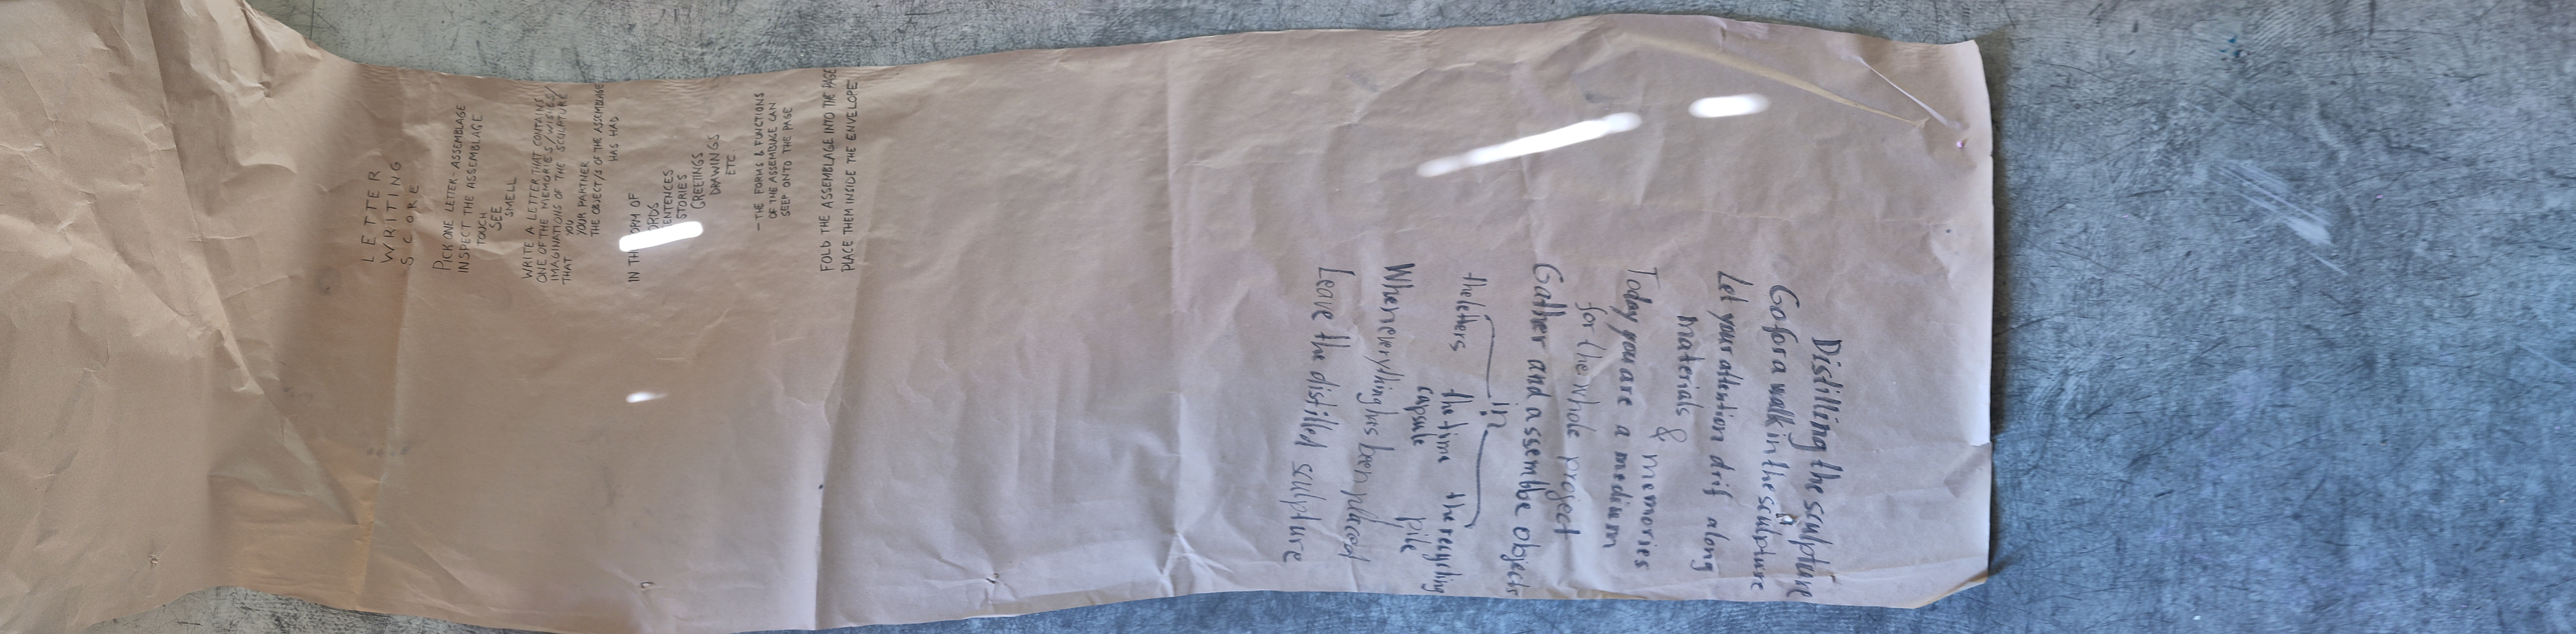 LETTER
WRITING
SCORE
PICK ONE LETTER-ASSEMBLAGE
INSPECT THE ASSEMBLAGE
TOUCH
SEE
SMELL
WRITE A LETTER THAT CONTAINS
ONE OF THE MEMORIES/WISHES/
IMAGINATIONS OF THE SCULPTURE
THAT YOU
YOUR PARTNER
THE OBJECT/S OF THE ASSEMBLAGE
HAS HAD
IN THE FORM OF
STORIES
GREETINGS
DRAWINGS
ETC
- THE FORMS & FUNCTIONS
OF THE ASSEMBLAGE CAN
SEEP ONTO THE PAGE
FOLD THE ASSEMBLAGE INTO THE PAGE
PLACE THEM INSIDE THE ENVELOPE
Distilling the sculpture
Go for a walk in the sculpture
Let your attention drif along
materials & memories
Today you are a medium
for the whole project
Gather and assemble objects
in
the letters the time the recycling
capsule pile
When everything has been placed
Leave the distilled sculpture